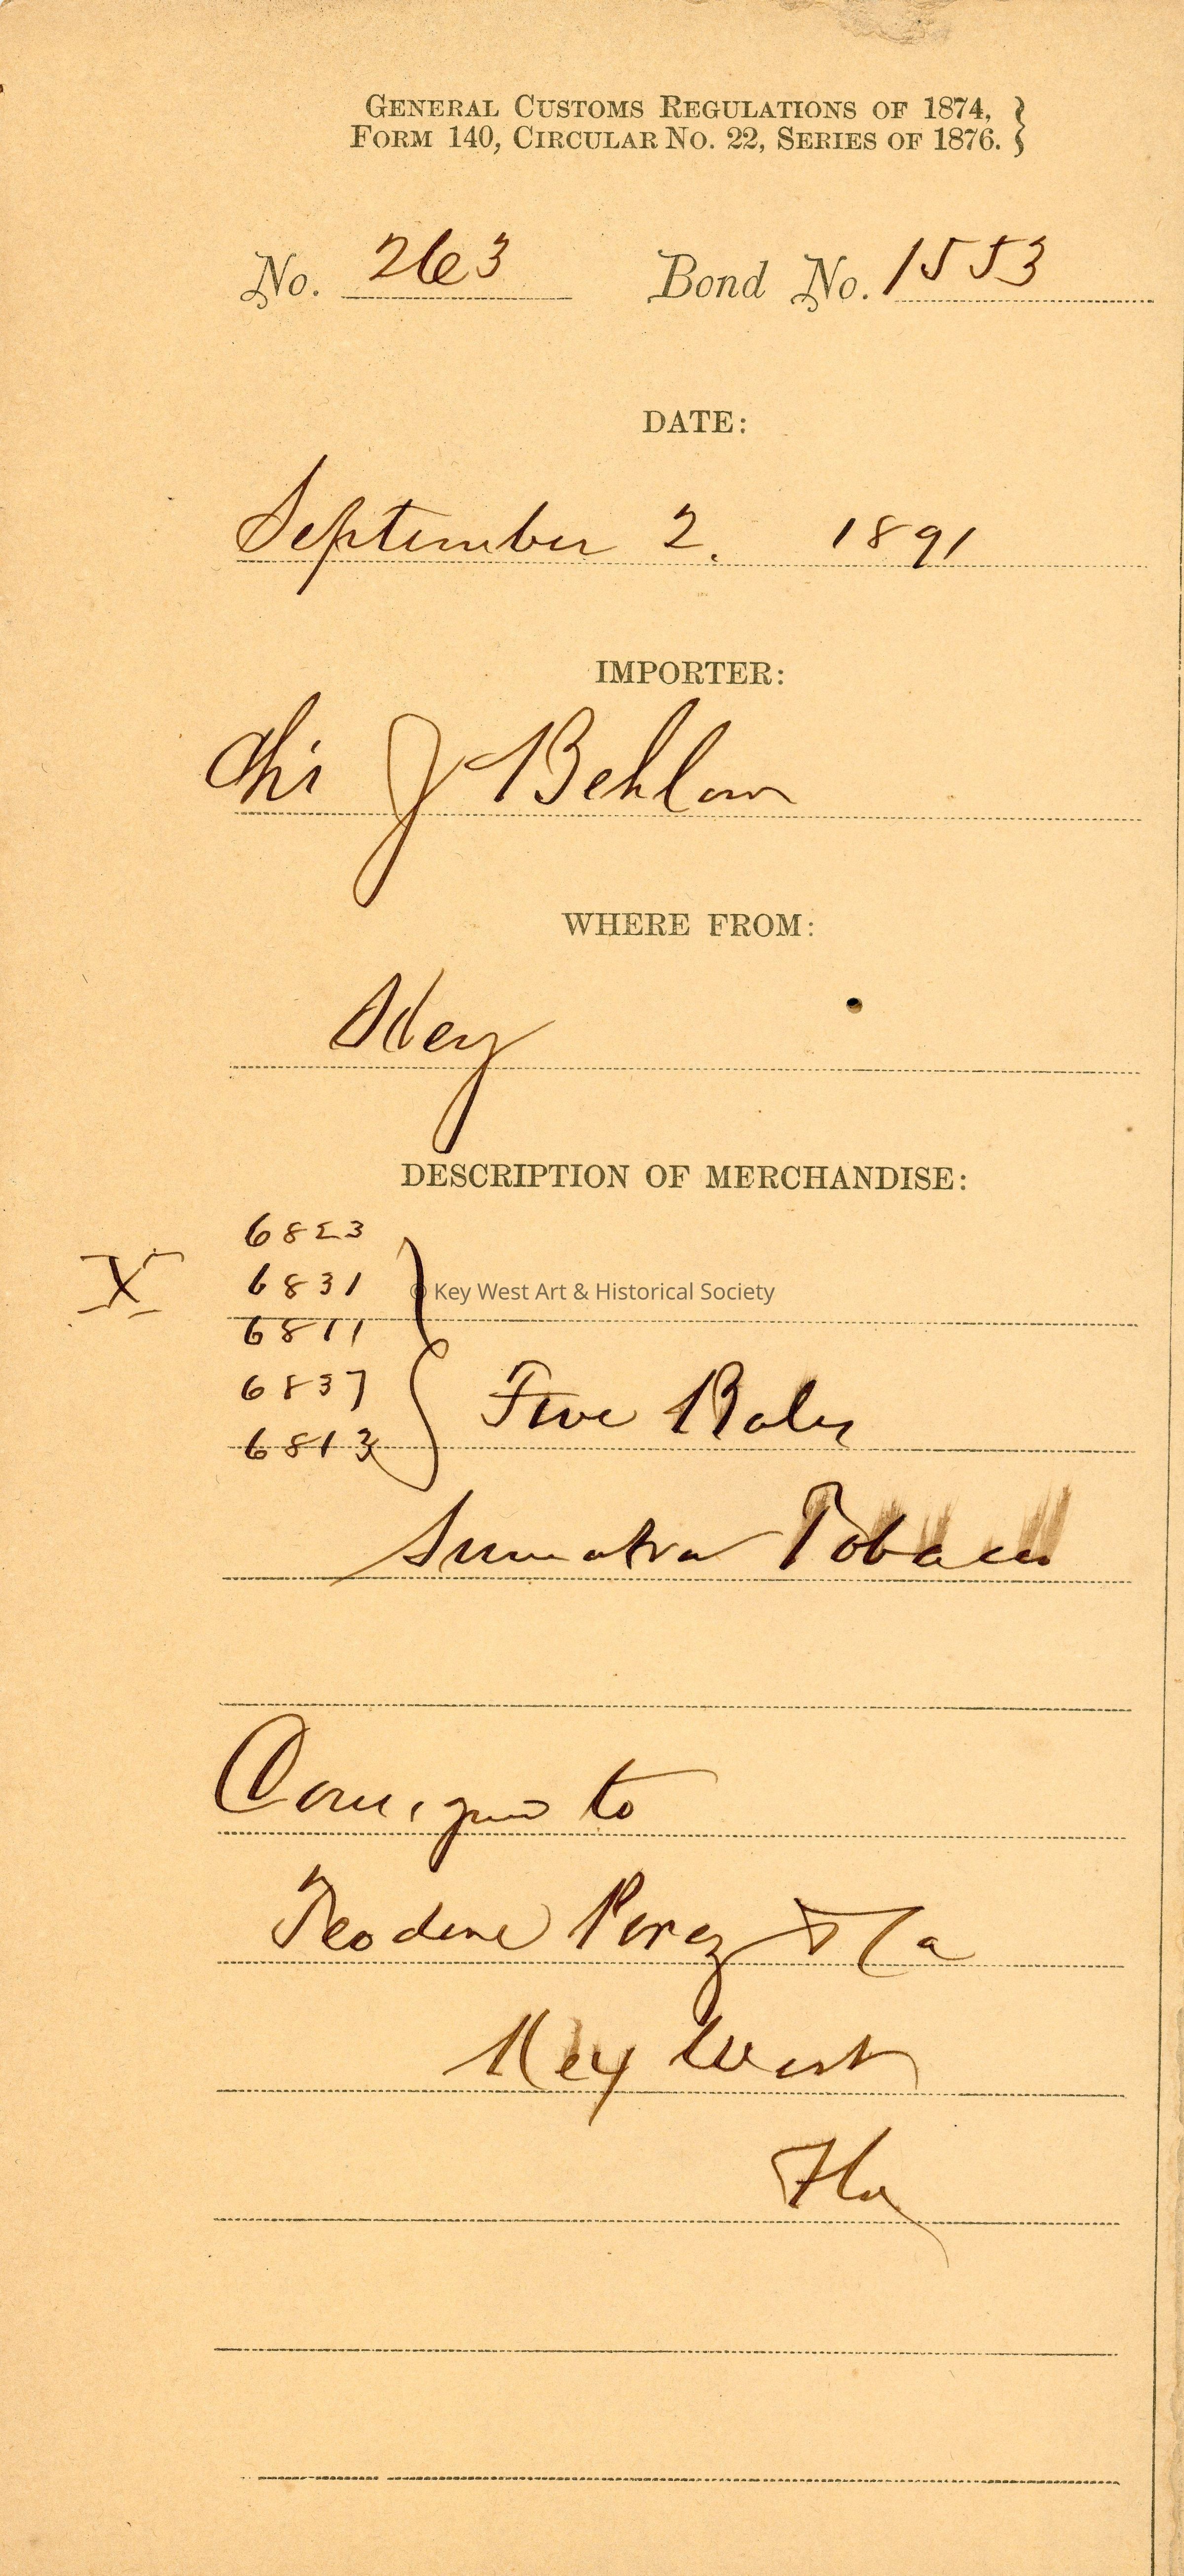 GENERAL CUSTOMS REGULATIONS OF 1874,
FORM 140, CIRCULAR NO. 22, SERIES OF 1876.
No. 263 Bond No. 1553
DATE:
September 2. 1891
IMPORTER:
J Behlow
WHERE FROM:
DESCRIPTION OF MERCHANDISE:
6823
X 6831
© Key West Art & Historical Society
6811
6837
Five Bales
6813
Sumatra Tobacco
to
Perez
Key West
Fla